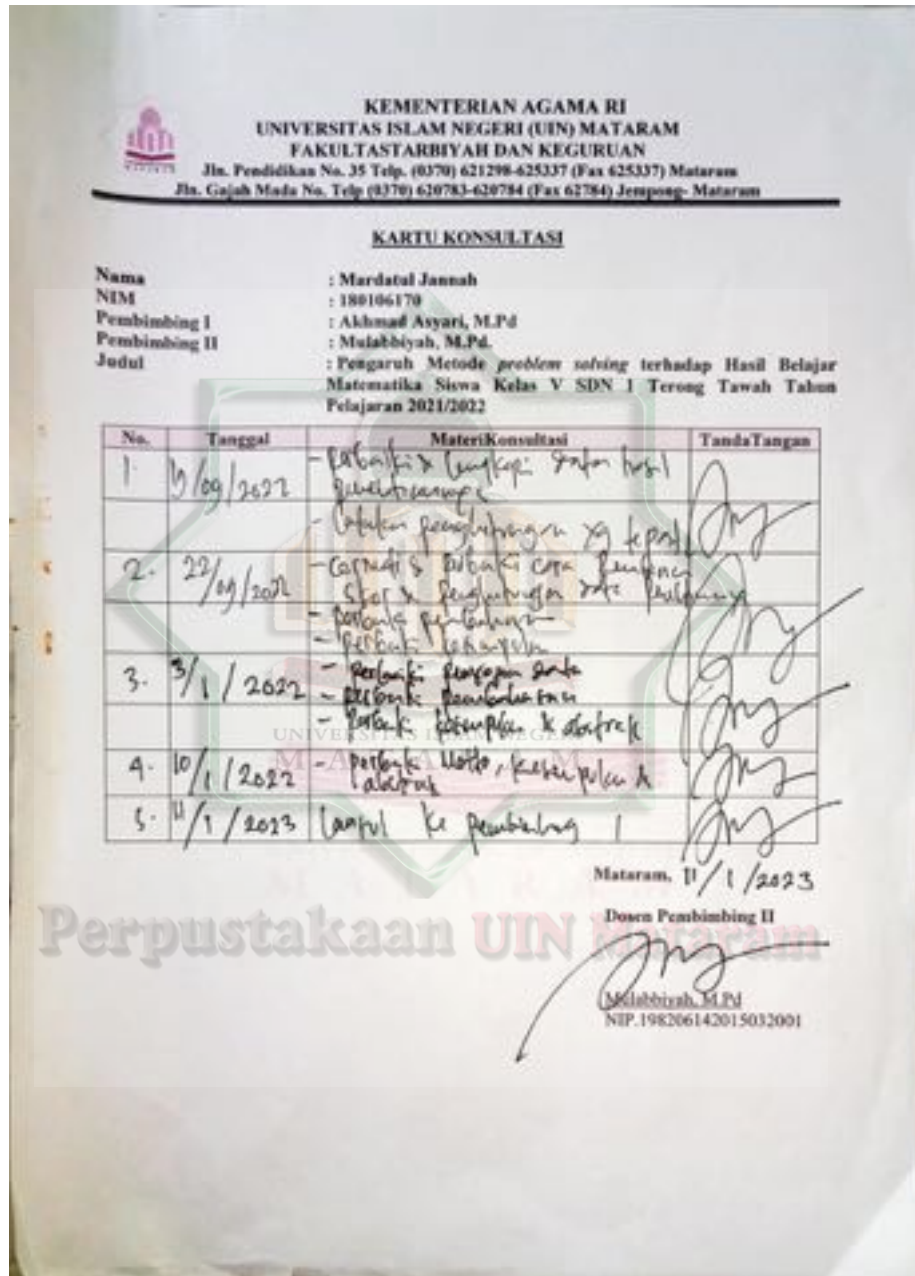 KEMENTERIAN AGAMA RI
UNIVERSITAS ISLAM NEGERI (UIN) MATARAM
FAKULTASTARBIYAH DAN KEGURUAN
Jln. Pendidikan No. 35 Telp. (0370) 621298-625337 (Fax 625337) Mataram
Jln. Gajah Mada No. Telp (0370) 620783-620784 (Fax 62784) Jempong- Mataram
KARTU KONSULTASI
Nama : Mardatul Jannah
NIM : 180106170
Pembimbing I : Akhmad Asyari, M.Pd
Pembimbing II : Mulabbiyah, M.Pd.
Judul : Pengaruh Metode problem solving terhadap Hasil Belajar
Matematika Siswa Kelas V SDN 1 Terong Tawah Tahun
Pelajaran 2021/2022
No. Tanggal MateriKonsultasi TandaTangan
1. /09/2022 - perbaiki & lengkapi hasil
- Lakukan penghitungan yg tepat
2. 22/09/2022 - & perbaiki cara
skor & penghitungan data
- perbaiki pembahasan
- perbaiki kesimpulan
3. 3/1/2022 - perbaiki data
- perbaiki pembahasan
- perbaiki kesimpulan & abstrak
4. 10/1/2022 - perbaiki Motto, kesimpulan &
abstrak
5. 11/1/2023 Lanjut ke pembimbing 1
UNIVERSITAS ISLAM NEGERI
MATARAM
Mataram, 11/1/2023
Perpustakaan UIN Mataram
Dosen Pembimbing II
Mulabbiyah, M.Pd
NIP.198206142015032001